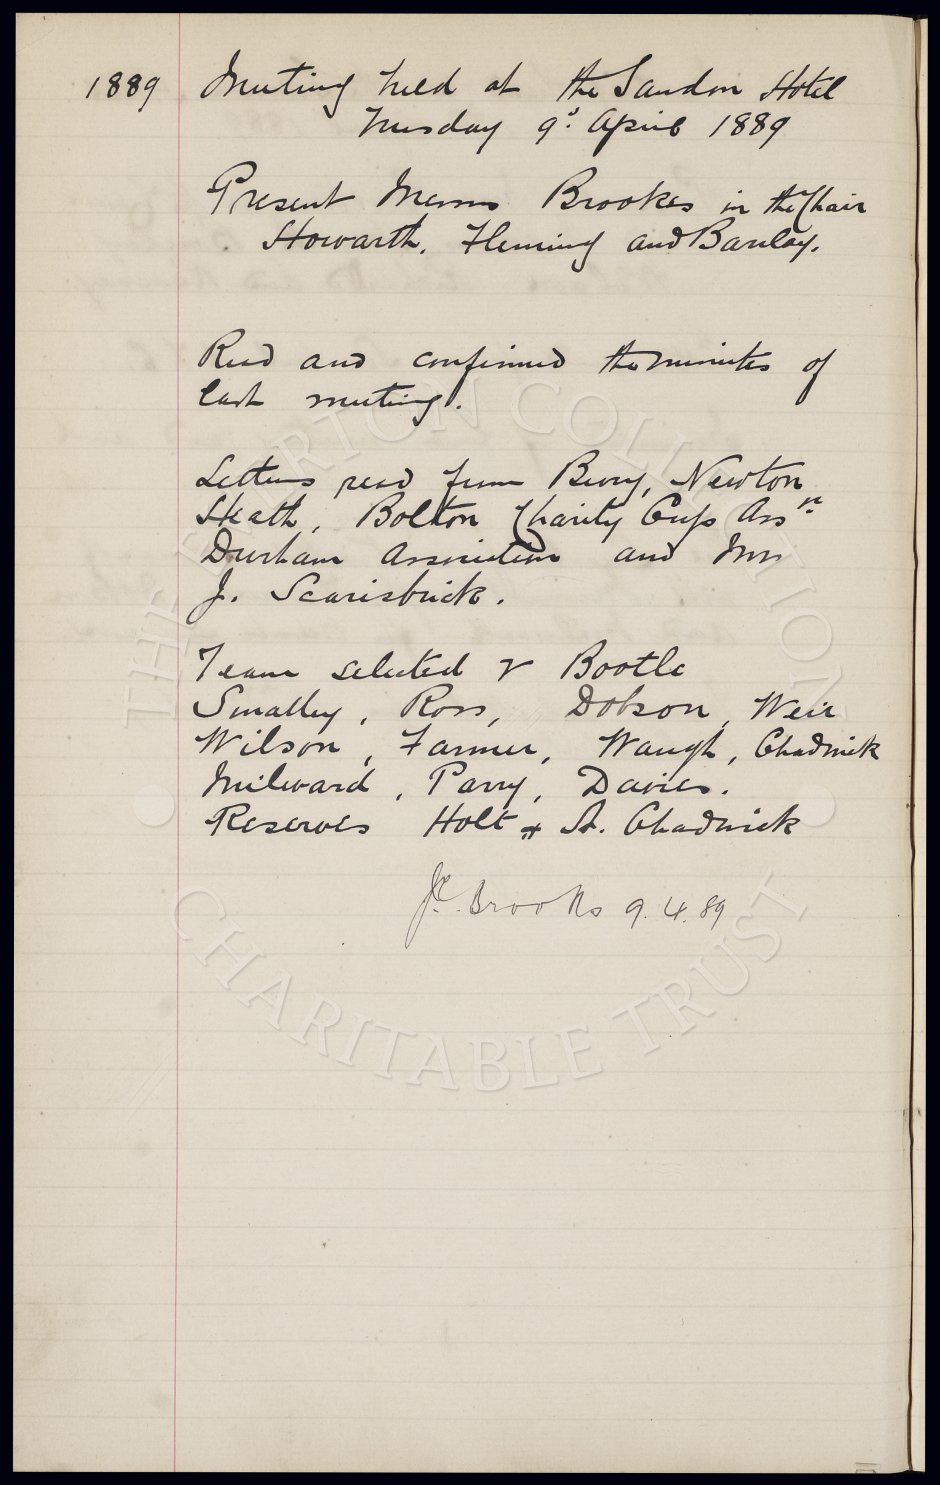 1889 Meeting held at the Sandon Hotel
Tuesday 9th April 1889
Present Messrs Brookes in the Chair
Howarth, Fleming and Barclay.
Read and confirmed the minutes of
last meeting.
Letters read from Bury, Newton
Heath, Bolton Charity Cup Assn
Durham Association and Mr
J. Scarisbrick.
Team selected v Bootle
Smalley, Ross, Dobson, Weir
Wilson, Farmer, Waugh, Chadwick
Milward, Parry, Davies.
Reserves Holt + A. Chadwick
Brooks 9.4.89
THE EVERTON COLLECTION
CHARITABLE TRUST